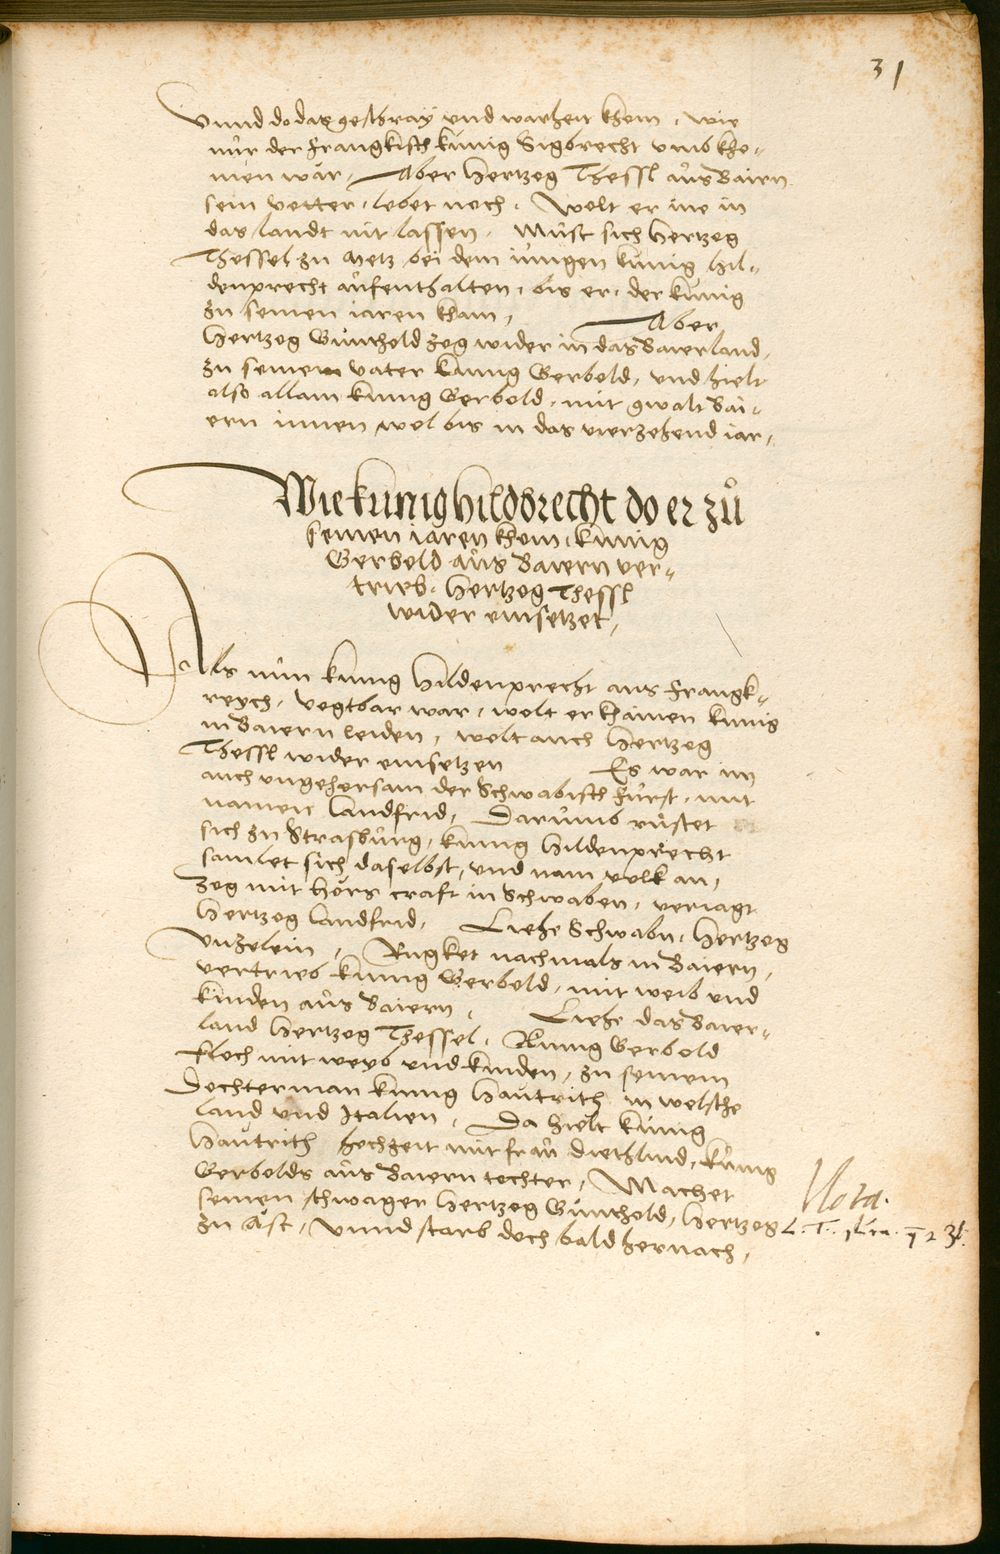 31
Vnnd do das geschray vnd warheit khom, wie
nur der Frangkisch künig Sigbrecht vmbkho-
men wär, Aber Hertzog Thessl aus Bairn
sein vetter, lebet noch, Wolt er ine in
das landt nit lassen, Müst sich Hertzog
Thessel zu Metz bei dem iungen künig Hil-
denprecht aufenthalten, bis er, der künig
zu seinen iaren kham, Aber
Hertzog Günthold zog wider in das Baierland,
zu seinem vater künig Gerbold, vnd hielt
also allain künig Gerbold, mit gwalt Bai-
ern innen wol bis in das vierzehend iar,
Wie künig Hildbrecht do er zů
seinen iaren khom, künig
Gerbold aus Baiern ver-
trieb, Hertzog Thessl
wider einsetzet,
Als nun künig Hildenprecht aus Frangk-
reych, vogtbar war, wolt er khainen künig
in Baiern leiden, wolt auch Hertzog
Thessl wider einsetzen Es war im
auch vngehorsam der Schwabisch fürst, mit
namen Landfrid, Darumb rüstet
sich zu Strasburg, künig Hildenprecht
samlet sich daselbst, vnd nam volk an,
Zog mit hörs craft in Schwaben, veriagt
Hertzog Landfrid, Liehe Schwabn, Hertzog
Vnzelein, Rugket nachmals in Baiern,
vertrieb künig Gerbold, mit weib vnd
kinden aus Baiern, Liehe das Baier-
land Hertzog Thessel, Künig Gerbold
floch mit weyb vnd kinden, zu seinem
Dochterman künig Hautrith in welsche
land vnd Italien, Da hielt künig
Hautrith hochzeit mit frau Diethlind, künig
Gerbolds aus Baiern tochter, Machet
seinen schwager Hertzog Günthold, Hertzog
zu Ast, Vnnd starb doch bald hernach,
Nota.